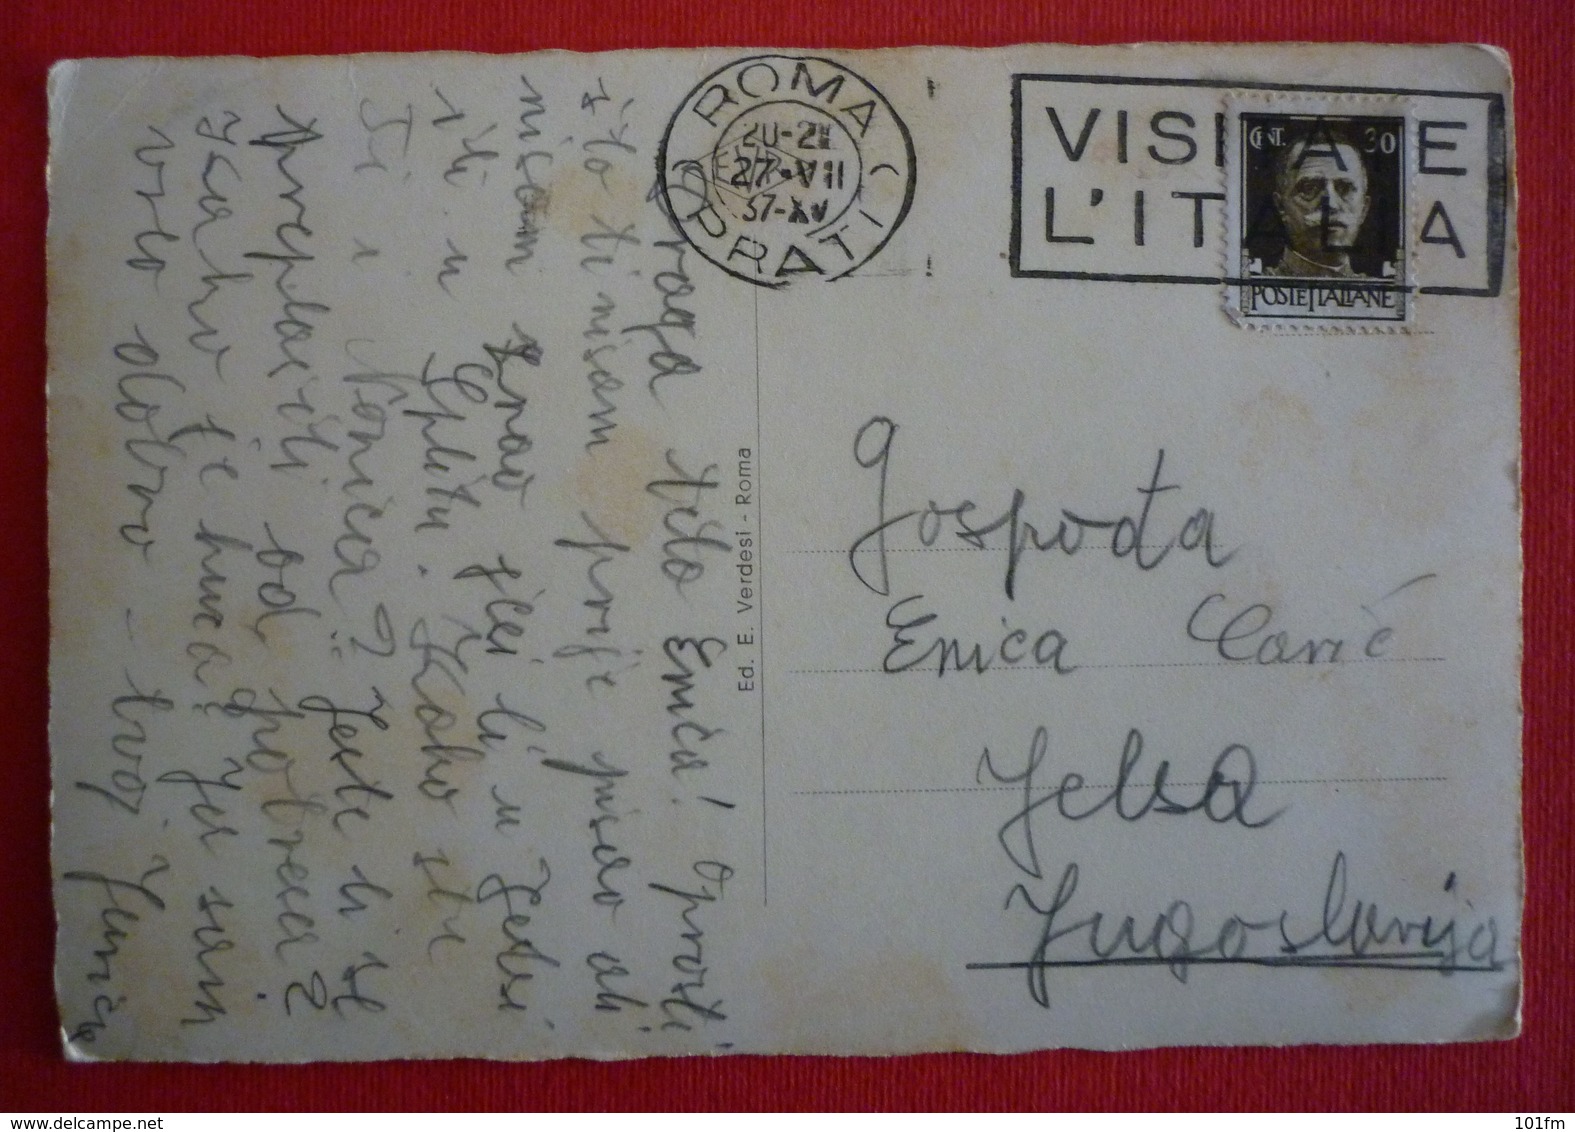 ROMA
PRATI
20-21
27·VII
37-XV
VISITATE
L'ITALIA
CENT. 30
POSTE ITALIANE
Draga teto Enica! Oprosti
što ti nisam prije pisao ali
nisam znao jesi li u Jelsi
ili u Splitu. Kako ste
Ti i Nonica? Jeste li se
preplašili od potresa?
Kakvo je hura? Ja sam
vrlo dobro - tvoj
Ed. E. Verdesi - Roma
Gospođa
Enica Carić
Jelsa
Jugoslavija
www.delcampe.net
101fm